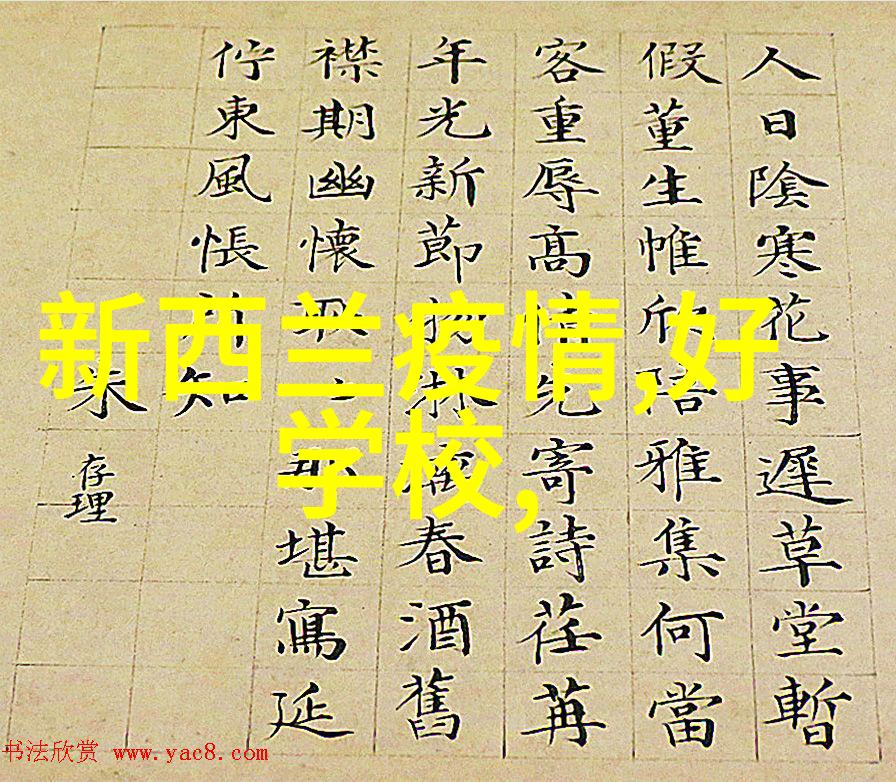 新西兰疫情,好
学校,
人日陰寒花事遲草堂暫
假董生帷欣陪雅集何當
客重辱髙情先寄詩荏苒
年光新節物淋漓春酒舊
襟期幽懷堪寫延
佇東風悵知
未
存理
书法欣赏 www.yac8.com